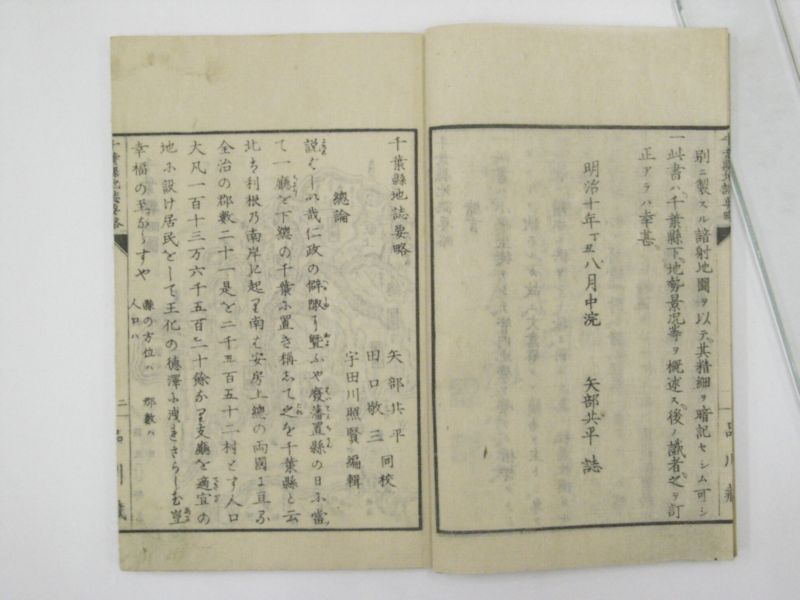 別ニ製スル諳射地圖ヲ以テ其精細ヲ暗記セシム可シ
一此書ハ千葉縣下地勢景況等ヲ概述ス後ノ識者之ヲ訂
正アラハ幸甚
明治十年丁丑八月中浣 矢部共平 誌
千葉縣地誌要略
矢部共平
田口敬三 同校
宇田川照賢 編輯
總論
哉仁政の僻陬に覃ふや廢藩置縣の日に當
て一廳を下總の千葉に置き稱して之を千葉縣と云
北は利根の南岸に起り南は安房上總の両國に亘る
全治の郡數二十一是を二千五百五十二村とす人口
大凡一百十三万六千五百二十餘なり支廳を適宜の
地に設け居民をして王化の德澤に洩れさらしむ豈
幸福の至ならすや
縣の方位ハ 郡數ハ
人口ハ
千葉縣地誌要略
二
品川藏